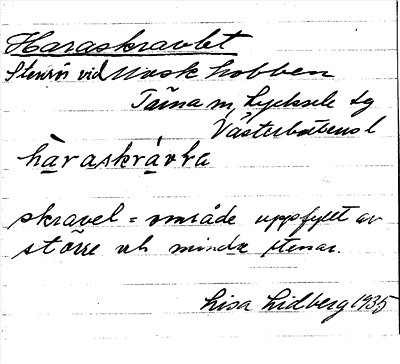 Haraskravlet
Stenrös vid Mask hobben
Tärna sn, Lycksele lg
Västerbottens l
håraskråvla
skravel = område uppfyllt av
större och mindre stenar.
Lisa Lidberg 1935